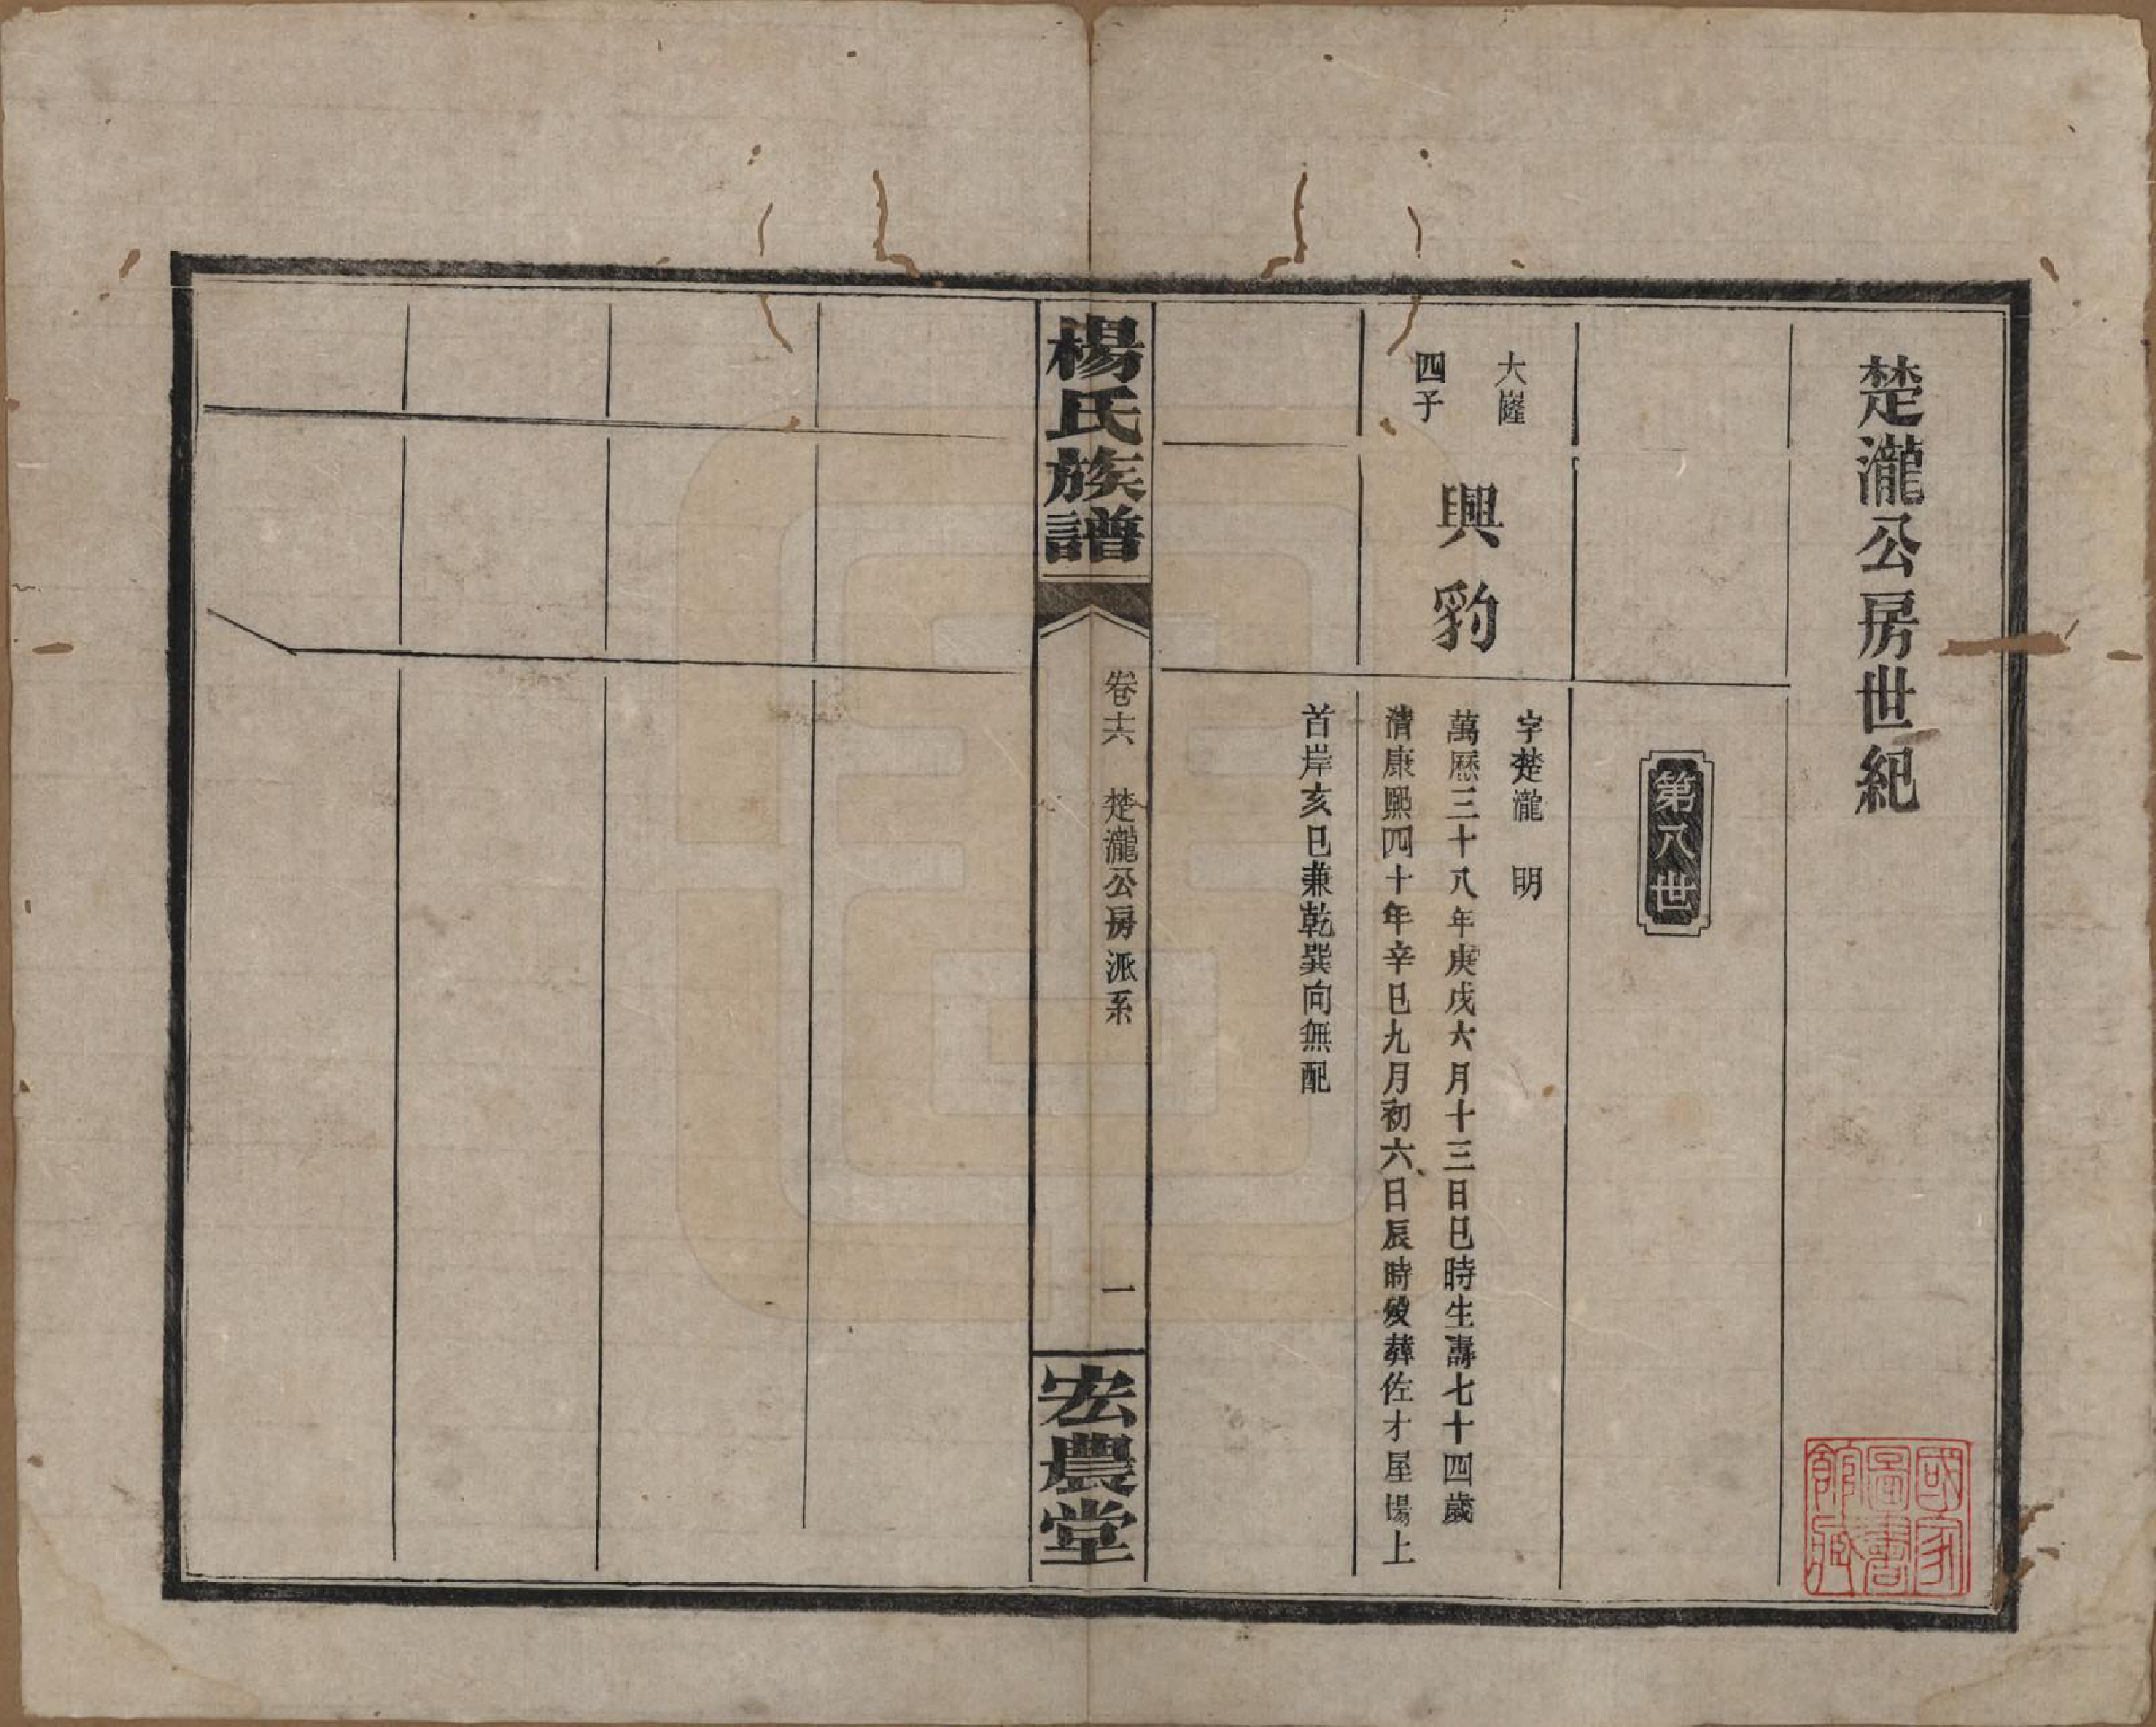 楚瀧公房世紀
第八世
大㠥
四子
興豹
字楚瀧　明
萬厯三十八年庚戌六月十三日巳時生壽七十四歲
清康熙四十年辛巳九月初六日辰時歿葬佐才屋場上
首岸亥巳兼乾巽向無配
楊氏族譜
卷十六　楚瀧公房派系
一
宏農堂
國家圖書館藏